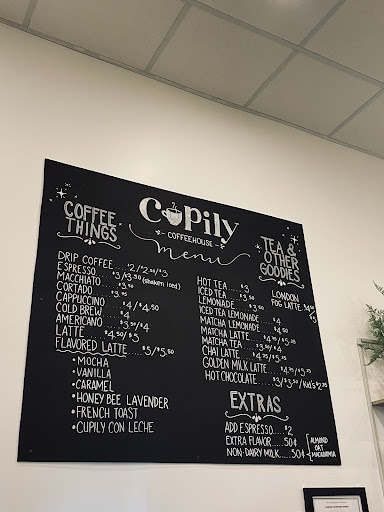 Cupily
- COFFEEHOUSE -
menu
COFFEE
THINGS
DRIP COFFEE.....$2/$2.50/$3
ESPRESSO........$3
MACCHIATO....$3/$3.50 (shaken iced)
CORTADO......$3.50
CAPPUCCINO....$4/$4.50
COLD BREW.....$4
AMERICANO....$3.50/$4
LATTE......$4.50/$5
FLAVORED LATTE.....$5/$5.50
•MOCHA
•VANILLA
•CARAMEL
•HONEY BEE LAVENDER
•FRENCH TOAST
•CUPILY CON LECHE
TEA &
OTHER
GOODIES
HOT TEA.....$3
ICED TEA.....$3.50
LEMONADE.....$3.50
ICED TEA LEMONADE.....$4
MATCHA LEMONADE.....$4.50
MATCHA LATTE.....$4.75/$5.25
MATCHA TEA.....$3.50/$4
CHAI LATTE.....$4.75/$5.25
GOLDEN MILK LATTE.....$4.75/$5.25
HOT CHOCOLATE.....$3/$3.50/kid's $2.75
LONDON
FOG LATTE.$4.50/$5
EXTRAS
ADD ESPRESSO.....$2
EXTRA FLAVOR.....50¢
NON-DAIRY MILK.....50¢
ALMOND
OAT
MACADAMIA